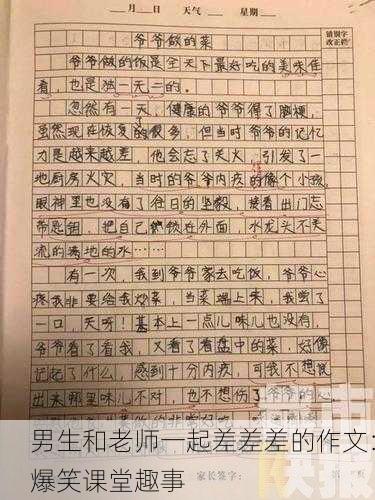 ___月___日 天气___ 星期___
错别字
改正栏
爷爷做的菜
爷爷做的饭是全天下最好吃的美味佳
肴，也是独一无二的。
忽然有一天，健康的爷爷得了脑梗，
虽然现在恢复的很多，但当时爷爷的记忆
力是越来越差，他会忘了关火，引发了一
地厨房火灾，当时的爷爷内疚的像个小孩，
眼神里也没有了往日的坚毅，接着出门忘
带匙钥，把自己锁在外面，水龙头不关
流的满地的水……
有一次，我到爷爷家去吃饭，爷爷心
疼我非要给我炒菜，当菜端上来，我尝了
一口，天呀！基本上一点儿味儿也没有，
爷爷看了看我，又看了看盘中的菜，好像
记起了什么，感到十分内疚，可我不想
出来哪里味儿不对，也不想伤了爷爷的
家长签字：
男生和老师一起差差差的作文：
爆笑课堂趣事